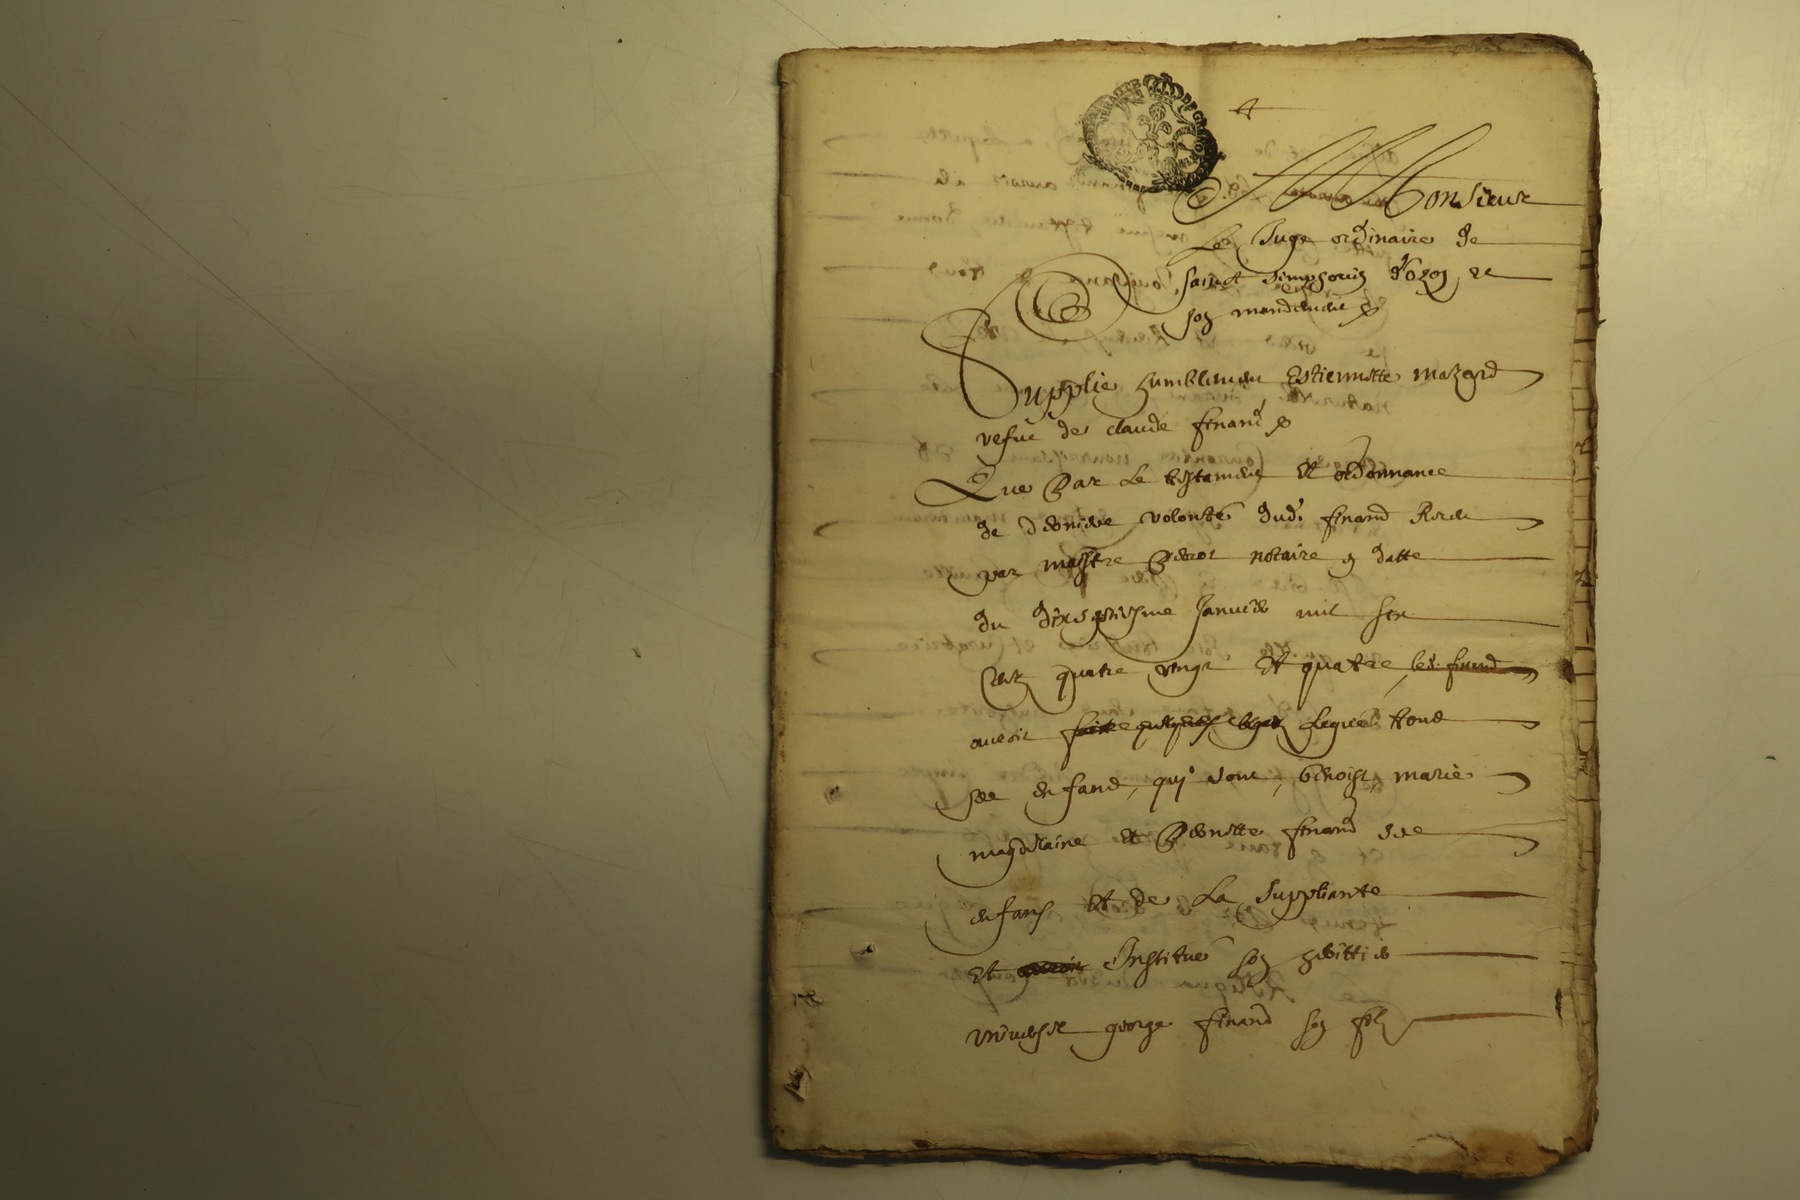 A Monsieur
Le Juge ordinaire de
sainct Simphorin d'ozon et
son mandement
Supplie humblement Estiennette mazard
vefue de claude finand
Que Par Le testament Et ordonnance
de derniere volonté dud. finand Receu
par maistre notaire en datte
du dixseptiesme Janvier mil six
Cent quatre vingt Et quatre, led. finand
auroit faitte quelques legat Legué a tous
ses enfans, qui sont, benoist, marie
magdelaine et Pernette finand ses
enfans Et de La Suppliante
Et auroit Institué son heritier
universel george finand son filz